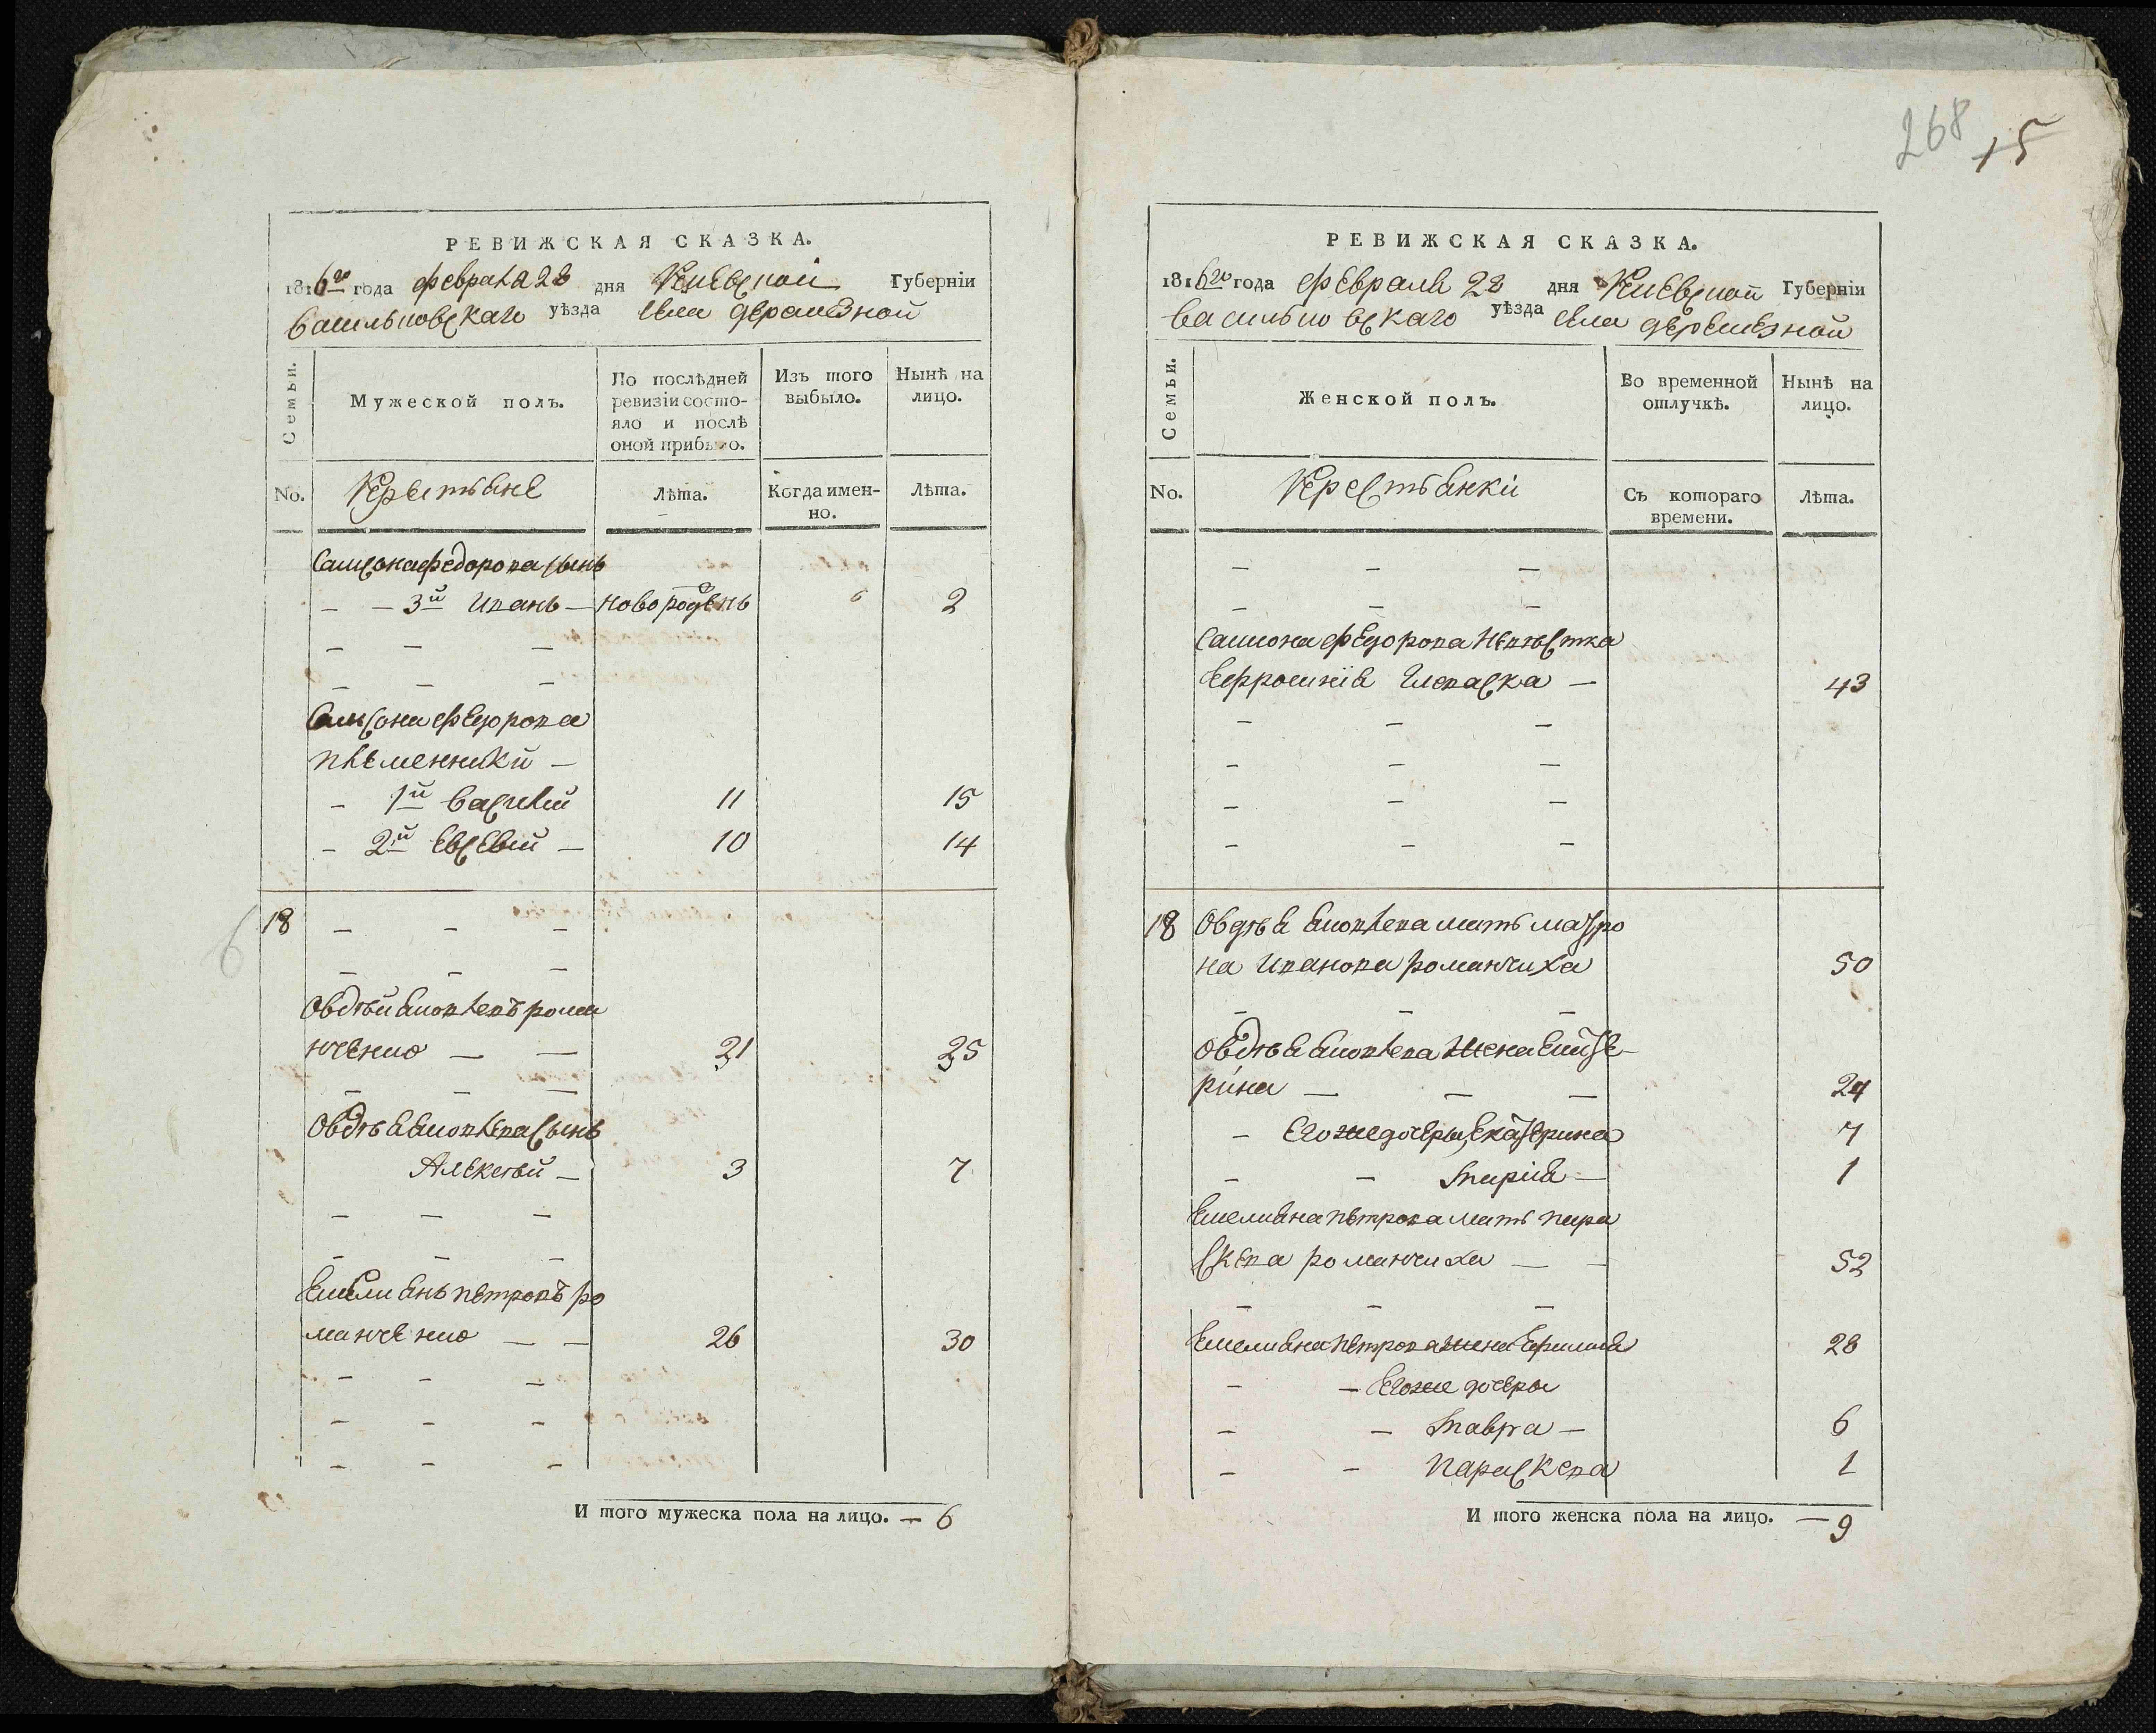 268 15
РЕВИЖСКАЯ СКАЗКА.
1816го года февраля 28 дня Киевской Губерніи
васильковскаго уѣзда села деремезной
Семьи.
Мужеской полъ.
По послѣдней ревизіи состояло и послѣ оной прибыло.
Изъ того выбыло.
Нынѣ на лицо.
No. Крестьяне Лѣта. Когда именно. Лѣта.
Самсона федорова сынъ
— — 3й Иванъ — новорожденъ 2
— — —
— — —
Самсона федорова
племенники —
— 1й василий 11 15
— 2й Евсевий — 10 14
18 — — —
— — —
Овдѣй яковлевъ рома
нченко — — 21 25
— — —
Овдѣя яковлева сынъ
Алексѣй — 3 7
— — —
— — —
Емелиянъ петровъ ро
манченко — — 26 30
— — —
— — —
— — —
И того мужеска пола на лицо. — 6
6
РЕВИЖСКАЯ СКАЗКА.
1816го года февраля 28 дня Киевской Губерніи
васильковскаго уѣзда села деремезной
Семьи.
Женской полъ.
Во временной отлучкѣ.
Нынѣ на лицо.
No. Крестьянки Съ котораго времени. Лѣта.
— — —
— — —
Самсона федорова невѣстка
Ефросинія — 43
— — —
— — —
— — —
— — —
18 Овдѣя яковлева мать матро
на Иванова романчиха 50
— — —
Овдѣя яковлева жена екате
рина — — — 24
— Егоже дочеры, екатерина 7
— — марія — 1
Емелияна петрова мать пара
скева романчиха — — 52
— — —
Емелияна петрова жена 28
— — Егоже дочеры
— — мавра — 6
— — параскева 1
И того женска пола на лицо. — 9